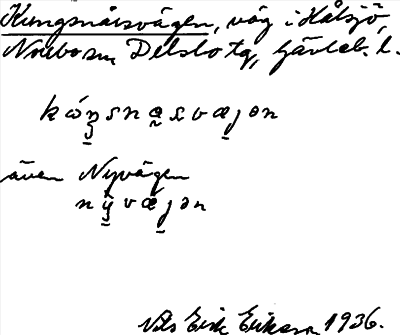 Kungsnäsvägen, väg i Hålsjö,
Norrbo sn Delsbo tg, Gävleb. l.
kóŋsnæsvæjən
även Nyvägen
nỳvæjən
Nils Erik Eriksson 1936.